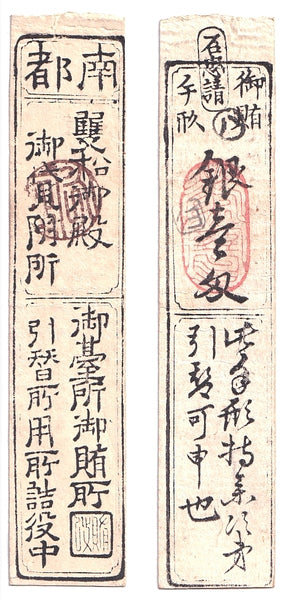 南都
襃松御殿
御貸附所
御臺所御賄所
引替所用所詰役中
石忠請
御賄
手形
銀壹匁
此手形持参次第
引替可申也